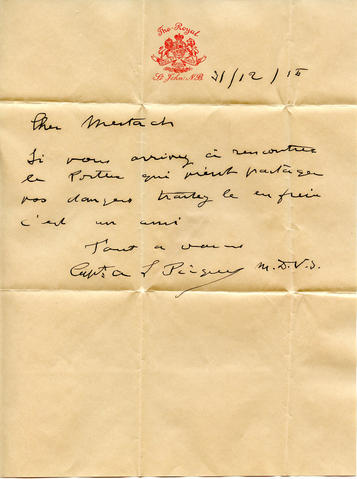 The Royal
St John N.B.
31/12/15
Cher Mestach
Si vous arrivez à rencontrer
le Porteur qui vient partager
vos dangers traitez le en frère
c'est un ami
Tout a vous
Capt A L M.D.V.S.